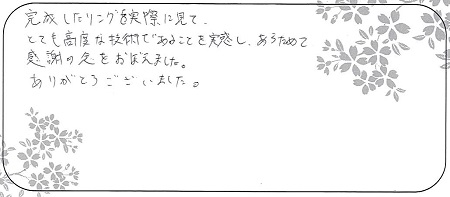 完成したリングを実際に見て、
とても高度な技術であることを実感し、あらためて
感謝の念をおぼえました。
ありがとうございました。